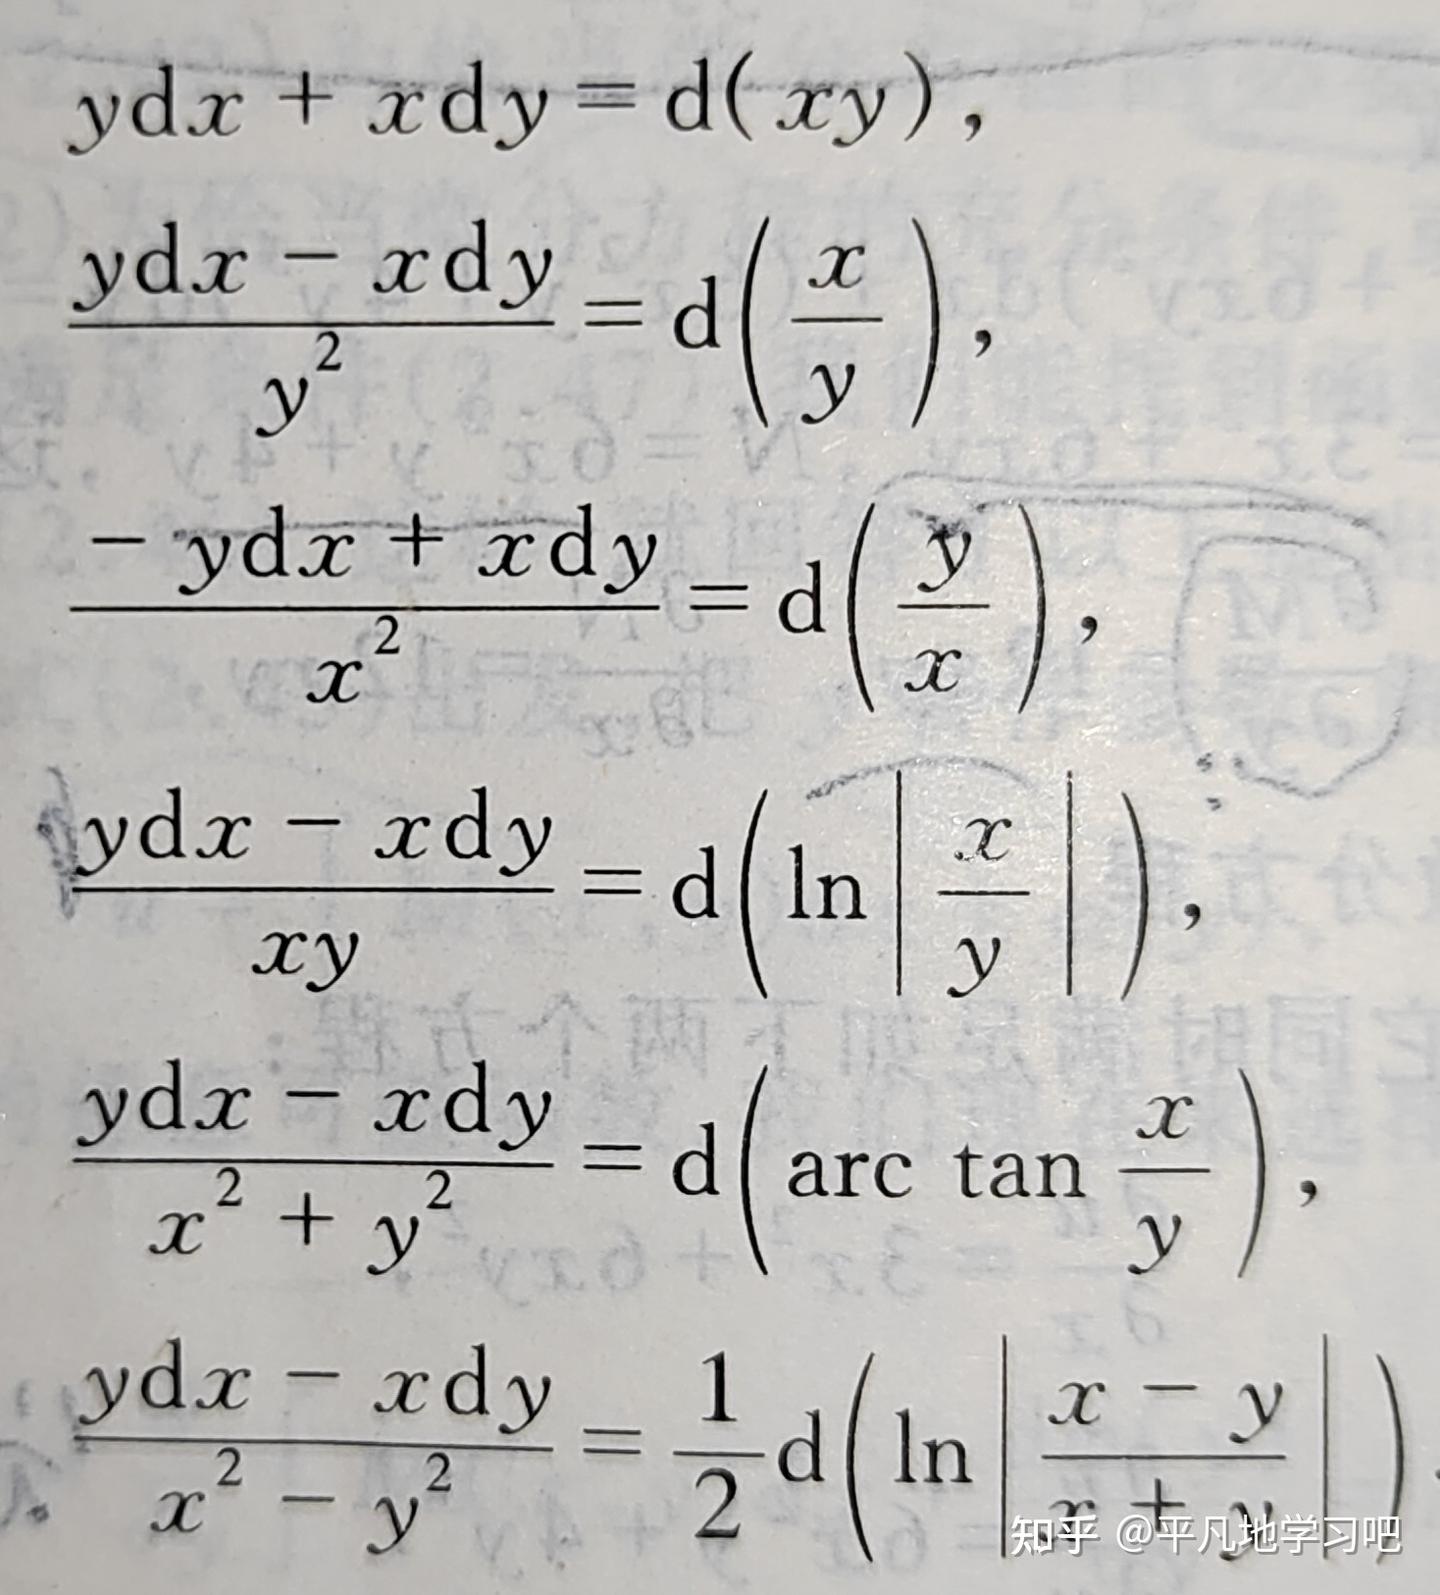 ydx + xdy = d(xy),
\frac{ydx - xdy}{y^2} = d\left(\frac{x}{y}\right),
\frac{-ydx + xdy}{x^2} = d\left(\frac{y}{x}\right),
\frac{ydx - xdy}{xy} = d\left(\ln\left|\frac{x}{y}\right|\right),
\frac{ydx - xdy}{x^2 + y^2} = d\left(arc tan\frac{x}{y}\right),
\frac{ydx - xdy}{x^2 - y^2} = \frac{1}{2}d\left(\ln\left|\frac{x - y}{x + y}\right|\right).
知乎 @平凡地学习吧